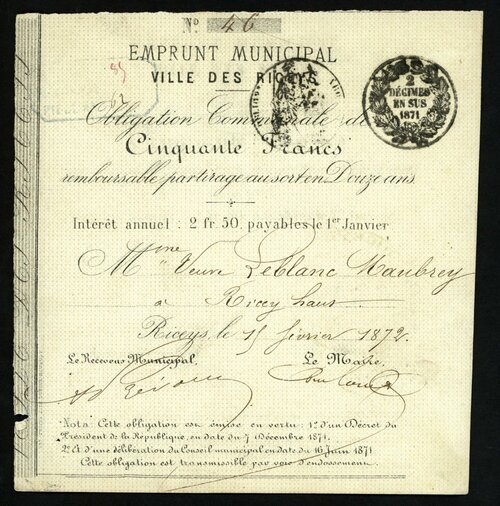 No 46
EMPRUNT MUNICIPAL
VILLE DES RICEYS
2
DÉCIMES
EN SUS
1871
Obligation Communale de
Cinquante Francs
remboursable par tirage au sort en Douze ans
Intérêt annuel : 2 fr 50, payables le 1er Janvier
Mme Veuve Leblanc Maubrey
à Ricey haut
Riceys, le 15 février 1872.
Le Receveur Municipal, Le Maire,
Nota : Cette obligation est émise en vertu : 1º d'un Décret du
Président de la République, en date du 7 Décembre 1871.
2º et d'une délibération du Conseil municipal en date du 16 Juin 1871
Cette obligation est transmissible par voie d'endossement.